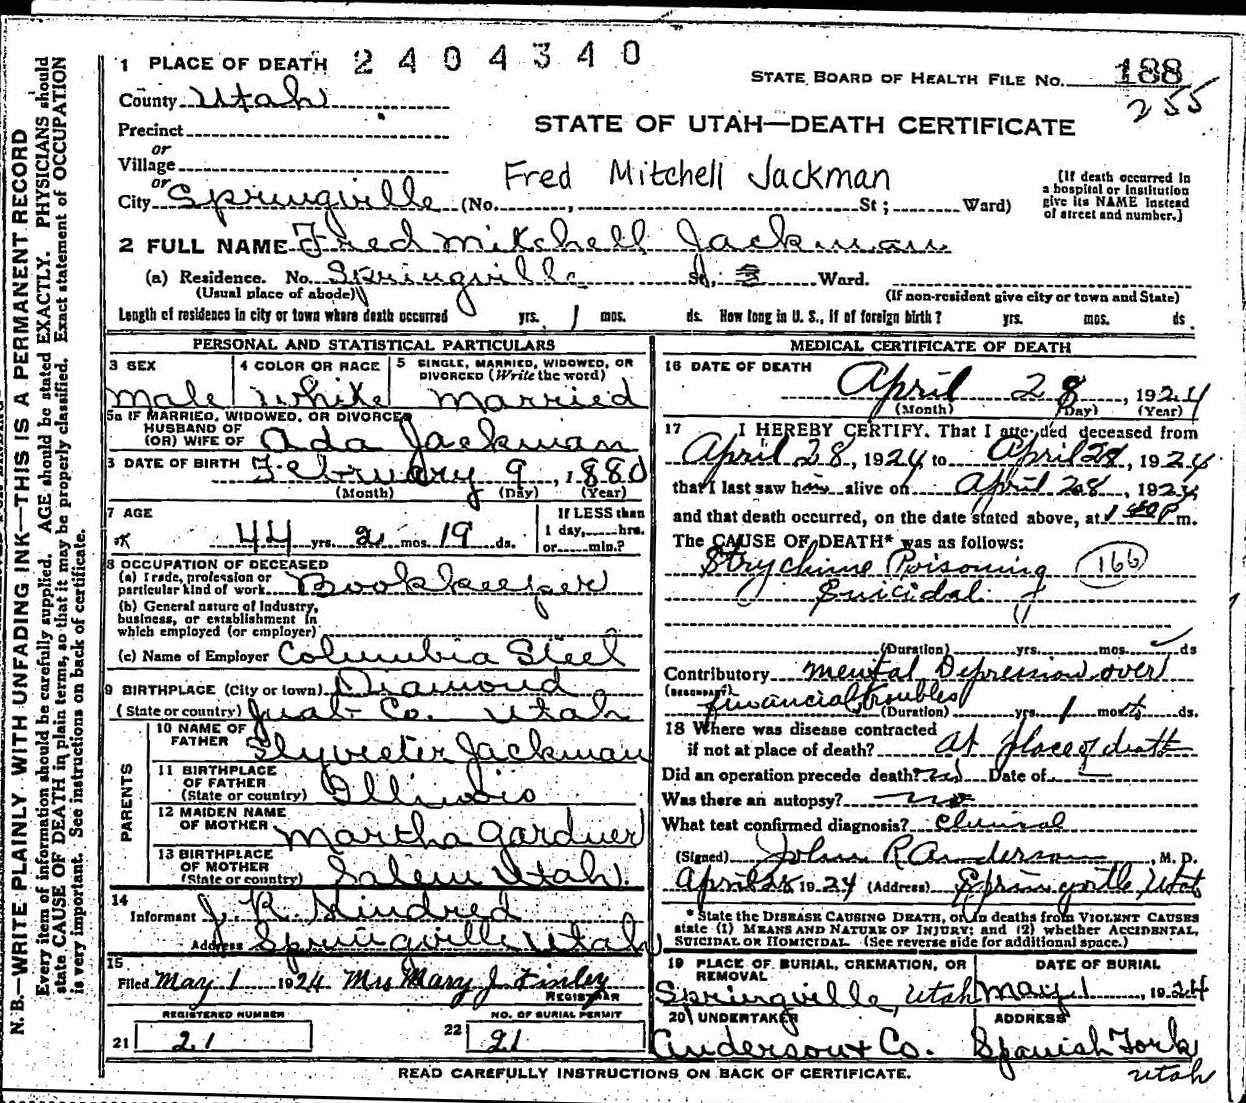 1 PLACE OF DEATH 2404340
STATE BOARD OF HEALTH FILE No. 188
255
County Utah
STATE OF UTAH—DEATH CERTIFICATE
Precinct
or
Village
or
City Springville (No. , St ; Ward)
Fred Mitchell Jackman
[If death occurred in
a hospital or institution
give its NAME instead
of street and number.]
2 FULL NAME Fred Mitchell Jackman
(a) Residence. No. Springville St, 3 Ward.
(Usual place of abode) (If non-resident give city or town and State)
Length of residence in city or town where death occurred yrs. 1 mos. ds. How long in U. S., if of foreign birth? yrs. mos. ds.
PERSONAL AND STATISTICAL PARTICULARS
3 SEX 4 COLOR OR RACE 5 SINGLE, MARRIED, WIDOWED, OR
DIVORCED (Write the word)
Male White Married
5a IF MARRIED, WIDOWED, OR DIVORCED
HUSBAND OF
(OR) WIFE OF Ada Jackman
6 DATE OF BIRTH February 9, 1880
(Month) (Day) (Year)
7 AGE 44 yrs. 2 mos. 19 ds.
If LESS than
1 day, hrs.
or min.?
8 OCCUPATION OF DECEASED
(a) Trade, profession or
particular kind of work Bookkeeper
(b) General nature of Industry,
business, or establishment in
which employed (or employer)
(c) Name of Employer Columbia Steel
9 BIRTHPLACE (City or town) Diamond
(State or country) Juab Co. Utah
PARENTS
10 NAME OF
FATHER Sylvester Jackman
11 BIRTHPLACE
OF FATHER
(State or country) Illinois
12 MAIDEN NAME
OF MOTHER Martha Gardner
13 BIRTHPLACE
OF MOTHER
(State or country) Salem Utah.
14
Informant J. R. Kindred
Address Springville Utah
15
Filed May 1 1924 Mrs Mary J. Finley
REGISTRAR
REGISTERED NUMBER NO. OF BURIAL PERMIT
21 21 22 21
MEDICAL CERTIFICATE OF DEATH
16 DATE OF DEATH
April 28, 1924
(Month) (Day) (Year)
17 I HEREBY CERTIFY. That I attended deceased from
April 28, 1924 to April 28, 1924
that I last saw him alive on April 28, 1924
and that death occurred, on the date stated above, at 1 40 P m.
The CAUSE OF DEATH* was as follows:
Strychnine Poisoning 166
Suicidal
(Duration) yrs. mos. ds
Contributory Mental Depression over
financial troubles
(Duration) yrs. 1 mos. ds.
18 Where was disease contracted
if not at place of death? At place of death
Did an operation precede death? no Date of —
Was there an autopsy? no
What test confirmed diagnosis? Clinical
(Signed) John R Anderson, M. D.
April 28 1924 (Address) Springville, Utah
* State the DISEASE CAUSING DEATH, or in deaths from VIOLENT CAUSES
state (1) MEANS AND NATURE OF INJURY; and (2) whether ACCIDENTAL,
SUICIDAL OR HOMICIDAL. (See reverse side for additional space.)
19 PLACE OF BURIAL, CREMATION, OR
REMOVAL DATE OF BURIAL
Springville, Utah May 1, 1924
20 UNDERTAKER ADDRESS
Anderson & Co. Spanish Fork
Utah
READ CAREFULLY INSTRUCTIONS ON BACK OF CERTIFICATE.
N. B.—WRITE PLAINLY WITH UNFADING INK—THIS IS A PERMANENT RECORD
Every item of information should be carefully supplied. AGE should be stated EXACTLY. PHYSICIANS should
state CAUSE OF DEATH in plain terms, so that it may be properly classified. Exact statement of OCCUPATION
is very important. See instructions on back of certificate.